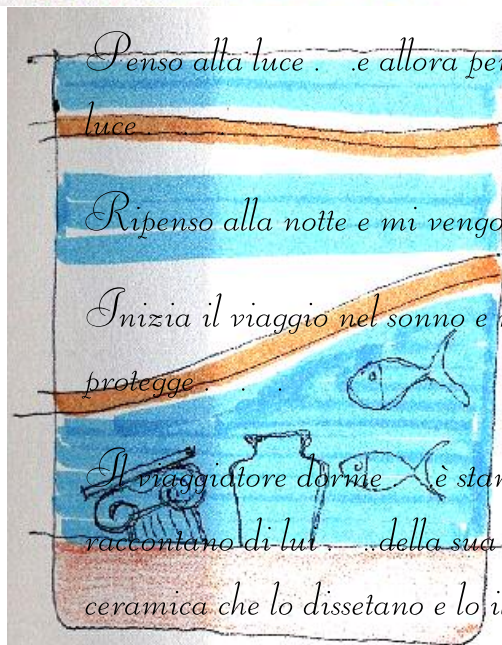 Penso alla luce . . .e allora
luce
Ripenso alla notte e mi vengo
Inizia il viaggio nel sonno e
protegge . . .
Il viaggiatore dorme . . è
raccontano di lui . . .della sua
ceramica che lo dissetano e lo